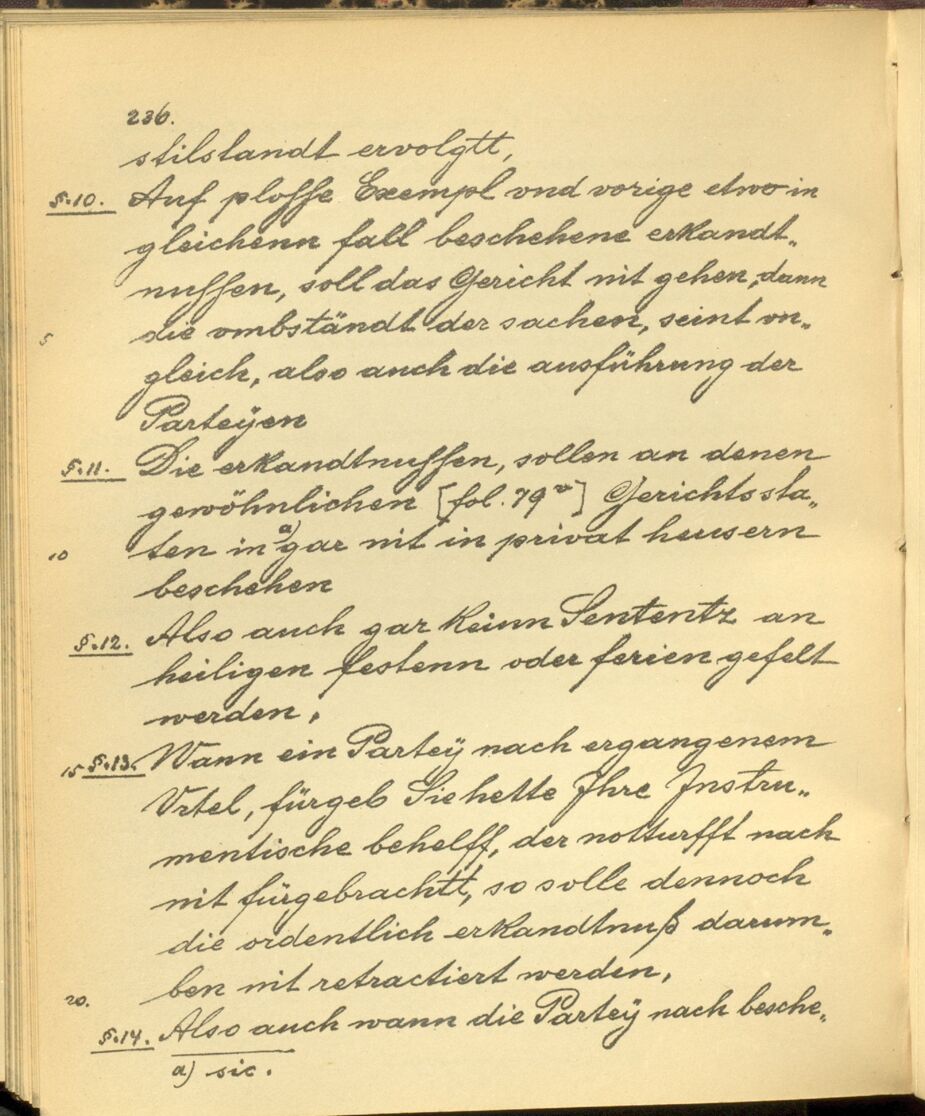 236.
stilstandt ervolgtt,
§.10. Auf plosse Exempl vnd vorige etwo in
gleichenn fall beschehene erkandt„
nussen, soll das Gericht nit gehen, dann
5 die vmbständt der sachen, seint vn„
gleich, also auch die ausführung der
Parteÿen
§.11. Die erkandtnussen, sollen an denen
gewöhnlichen [fol. 79ᵛ] Gerichtssta„
10 ten in a) gar nit in privat heusern
beschehen
§.12. Also auch gar keinn Sententz an
heiligen festenn oder ferien gefelt
werden,
15 §.13. Wann ein Parteÿ nach ergangenem
Vrtel, fürgeb Sie hette Ihre Instru„
mentische behelff, der notturfft nach
nit fürgebrachtt, so solle dennoch
die ordentlich erkandtnuß darum„
ben nit retractiert werden,
20. §.14. Also auch wann die Parteÿ nach besche„
a) sic.